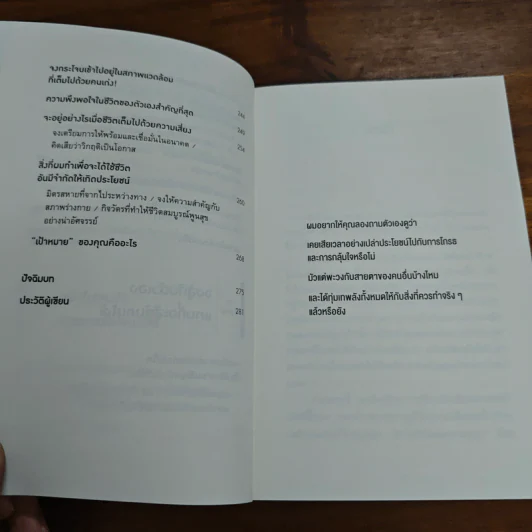 จงกระโจนเข้าไปอยู่ในสภาพแวดล้อม
ที่เต็มไปด้วยคนเก่ง!
ความพึงพอใจในชีวิตของตัวเองสำคัญที่สุด 246
จะอยู่อย่างไรเมื่อชีวิตเต็มไปด้วยความเสี่ยง
จงเตรียมการให้พร้อมและเชื่อมั่นในอนาคต / 254
คิดเสียว่าวิกฤติเป็นโอกาส
สิ่งที่ผมทำเพื่อจะได้ใช้ชีวิต
อันมีจำกัดให้เกิดประโยชน์ 260
มิตรสหายที่จากไประหว่างทาง / จงให้ความสำคัญกับ
สภาพร่างกาย / กิจวัตรที่ทำให้ชีวิตสมบูรณ์พูนสุข
อย่างน่าอัศจรรย์
"เป้าหมาย" ของคุณคืออะไร 268
ปัจฉิมบท 275
ประวัติผู้เขียน 281
ผมอยากให้คุณลองถามตัวเองดูว่า
เคยเสียเวลาอย่างเปล่าประโยชน์ไปกับการโกรธ
และการกลุ้มใจหรือไม่
มัวแต่พะวงกับสายตาของคนอื่นบ้างไหม
และได้ทุ่มเทพลังทั้งหมดให้กับสิ่งที่ควรทำจริง ๆ
แล้วหรือยัง